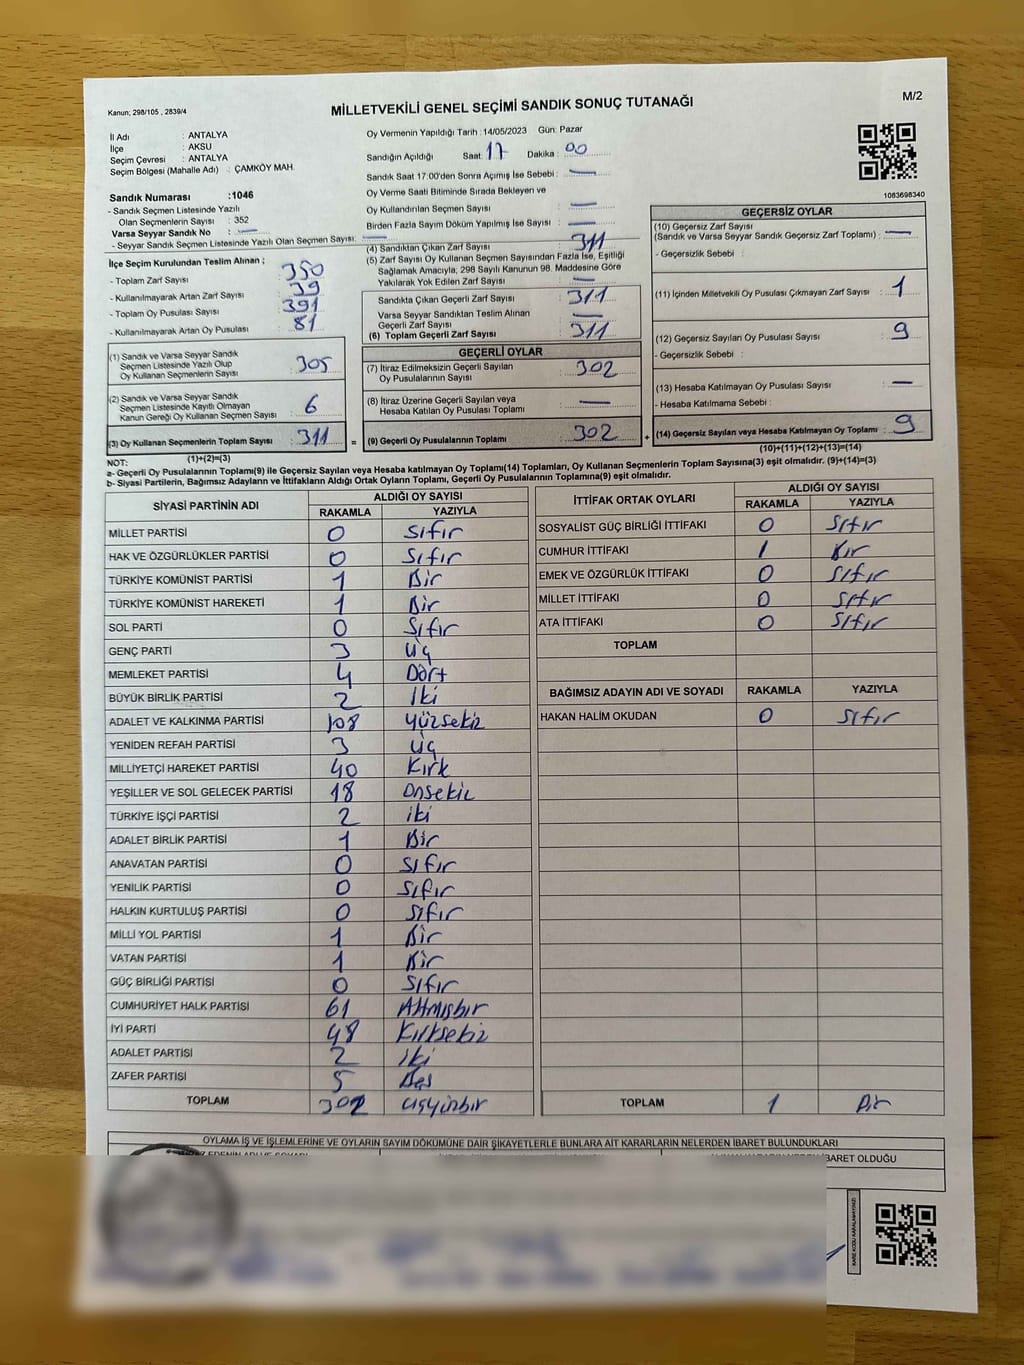 Kanun; 298/105 , 2839/4
MİLLETVEKİLİ GENEL SEÇİMİ SANDIK SONUÇ TUTANAĞI
M/2
İl Adı : ANTALYA
İlçe : AKSU
Seçim Çevresi : ANTALYA
Seçim Bölgesi (Mahalle Adı) : ÇAMKÖY MAH.
Oy Vermenin Yapıldığı Tarih : 14/05/2023 Gün: Pazar
Sandığın Açıldığı Saat: 17 Dakika : 00
Sandık Saat 17:00'den Sonra Açımış İse Sebebi : —
Oy Verme Saati Bitiminde Sırada Bekleyen ve
Oy Kullandırılan Seçmen Sayısı : —
Birden Fazla Sayım Döküm Yapılmış İse Sayısı : —
1083698340
Sandık Numarası :1046
- Sandık Seçmen Listesinde Yazılı
Olan Seçmenlerin Sayısı : 352
Varsa Seyyar Sandık No : —
- Seyyar Sandık Seçmen Listesinde Yazılı Olan Seçmen Sayısı: —
İlçe Seçim Kurulundan Teslim Alınan ;
- Toplam Zarf Sayısı : 350
- Kullanılmayarak Artan Zarf Sayısı : 39
- Toplam Oy Pusulası Sayısı : 391
- Kullanılmayarak Artan Oy Pusulası : 81
(1) Sandık ve Varsa Seyyar Sandık
Seçmen Listesinde Yazılı Olup
Oy Kullanan Seçmenlerin Sayısı : 305
(2) Sandık ve Varsa Seyyar Sandık
Seçmen Listesinde Kayıtlı Olmayan
Kanun Gereği Oy Kullanan Seçmen Sayısı : 6
(3) Oy Kullanan Seçmenlerin Toplam Sayısı : 311 =
(1)+(2)=(3)
(4) Sandıktan Çıkan Zarf Sayısı : 311
(5) Zarf Sayısı Oy Kullanan Seçmen Sayısından Fazla İse, Eşitliği
Sağlamak Amacıyla; 298 Sayılı Kanunun 98. Maddesine Göre
Yakılarak Yok Edilen Zarf Sayısı : —
Sandıkta Çıkan Geçerli Zarf Sayısı : 311
Varsa Seyyar Sandıktan Teslim Alınan
Geçerli Zarf Sayısı : —
(6) Toplam Geçerli Zarf Sayısı : 311
GEÇERLİ OYLAR
(7) İtiraz Edilmeksizin Geçerli Sayılan
Oy Pusulalarının Sayısı : 302
(8) İtiraz Üzerine Geçerli Sayılan veya
Hesaba Katılan Oy Pusulası Toplamı : —
(9) Geçerli Oy Pusulalarının Toplamı : 302 +
GEÇERSİZ OYLAR
(10) Geçersiz Zarf Sayısı
(Sandık ve Varsa Seyyar Sandık Geçersiz Zarf Toplamı) : —
- Geçersizlik Sebebi :
(11) İçinden Milletvekili Oy Pusulası Çıkmayan Zarf Sayısı : 1
(12) Geçersiz Sayılan Oy Pusulası Sayısı : 9
- Geçersizlik Sebebi :
(13) Hesaba Katılmayan Oy Pusulası Sayısı : —
- Hesaba Katılmama Sebebi :
(14) Geçersiz Sayılan veya Hesaba Katılmayan Oy Toplamı : 9
(10)+(11)+(12)+(13)=(14)
NOT:
a- Geçerli Oy Pusulalarının Toplamı(9) ile Geçersiz Sayılan veya Hesaba katılmayan Oy Toplamı(14) Toplamları, Oy Kullanan Seçmenlerin Toplam Sayısına(3) eşit olmalıdır. (9)+(14)=(3)
b- Siyasi Partilerin, Bağımsız Adayların ve İttifakların Aldığı Ortak Oyların Toplamı, Geçerli Oy Pusulalarının Toplamına(9) eşit olmalıdır.
SİYASİ PARTİNİN ADI ALDIĞI OY SAYISI
RAKAMLA YAZIYLA
MİLLET PARTİSİ 0 Sıfır
HAK VE ÖZGÜRLÜKLER PARTİSİ 0 Sıfır
TÜRKİYE KOMÜNİST PARTİSİ 1 Bir
TÜRKİYE KOMÜNİST HAREKETİ 1 Bir
SOL PARTİ 0 Sıfır
GENÇ PARTİ 3 Üç
MEMLEKET PARTİSİ 4 Dört
BÜYÜK BİRLİK PARTİSİ 2 İki
ADALET VE KALKINMA PARTİSİ 108 Yüzsekiz
YENİDEN REFAH PARTİSİ 3 Üç
MİLLİYETÇİ HAREKET PARTİSİ 40 Kırk
YEŞİLLER VE SOL GELECEK PARTİSİ 18 Onsekiz
TÜRKİYE İŞÇİ PARTİSİ 2 iki
ADALET BİRLİK PARTİSİ 1 Bir
ANAVATAN PARTİSİ 0 Sıfır
YENİLİK PARTİSİ 0 Sıfır
HALKIN KURTULUŞ PARTİSİ 0 Sıfır
MİLLİ YOL PARTİSİ 1 Bir
VATAN PARTİSİ 1 Bir
GÜÇ BİRLİĞİ PARTİSİ 0 Sıfır
CUMHURİYET HALK PARTİSİ 61 Altmışbir
İYİ PARTİ 48 Kırksekiz
ADALET PARTİSİ 2 İki
ZAFER PARTİSİ 5 Beş
TOPLAM 302
İTTİFAK ORTAK OYLARI ALDIĞI OY SAYISI
RAKAMLA YAZIYLA
SOSYALİST GÜÇ BİRLİĞİ İTTİFAKI 0 Sıfır
CUMHUR İTTİFAKI 1 Bir
EMEK VE ÖZGÜRLÜK İTTİFAKI 0 Sıfır
MİLLET İTTİFAKI 0 Sıfır
ATA İTTİFAKI 0 Sıfır
TOPLAM
BAĞIMSIZ ADAYIN ADI VE SOYADI RAKAMLA YAZIYLA
HAKAN HALİM OKUDAN 0 Sıfır
TOPLAM 1 Bir
OYLAMA İŞ VE İŞLEMLERİNE VE OYLARIN SAYIM DÖKÜMÜNE DAİR ŞİKAYETLERLE BUNLARA AİT KARARLARIN NELERDEN İBARET BULUNDUKLARI
İBARET OLDUĞU